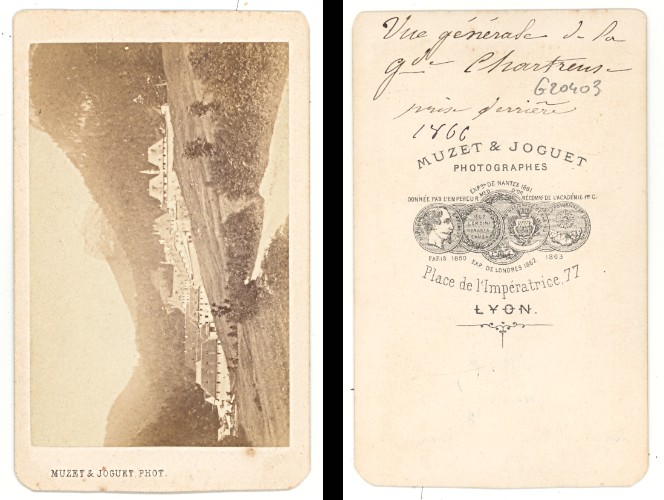 MUZET & JOGUET, PHOT.
Vue générale de la
gde Chartreuse
G20403
prise derrière
1866
MUZET & JOGUET
PHOTOGRAPHES
EXPon DE NANTES 1861
DONNÉE PAR L'EMPEREUR MED. D'OR RÉCOMPse DE L'ACADÉMIE Ire C.
PARIS 1860 EXP. DE LONDRES 1862 1863
Place de l'Impératrice, 77
LYON.